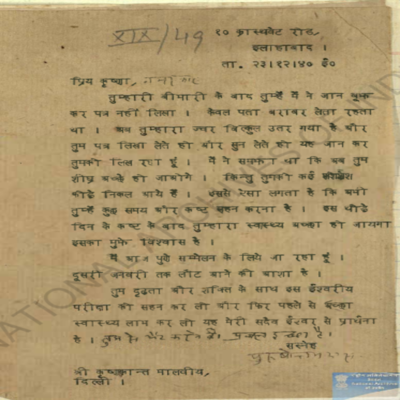 XIX/49
१० क्रास्थवेट रोड,
इलाहाबाद ।
ता. २३।१२।४० ई०
प्रिय कृष्णा,
तुम्हारी बीमारी के बाद तुम्हें मैं ने जान बूझ
कर पत्र नहीं लिखा । केवल पता बराबर लेता रहता
था । अब तुम्हारा ज्वर बिल्कुल उतर गया है और
तुम पत्र लिखा लेते हो और सुन लेते हो यह जान कर
तुमको लिख रहा हूं । मैं ने समझा था कि अब तुम
शीघ्र अच्छे हो जाओगे । किन्तु तुमको कई
फोड़े निकल आये हैं । इससे ऐसा लगता है कि अभी
तुम्हें कुछ समय और कष्ट सहन करना है । इस थोड़े
दिन के कष्ट के बाद तुम्हारा स्वास्थ्य अच्छा हो जायगा
इसका मुझे विश्वास है ।
मैं आज पूना सम्मेलन के लिये जा रहा हूं ।
दूसरी जनवरी तक लौट आने की आशा है ।
तुम दृढ़ता और शक्ति के साथ इस ईश्वरीय
परीक्षा को सहन कर लो और फिर पहले से अच्छा
स्वास्थ्य लाभ कर लो यह मेरी सदैव ईश्वर से प्रार्थना
है ।
सस्नेह
श्री कृष्णकान्त मालवीय,
दिल्ली ।